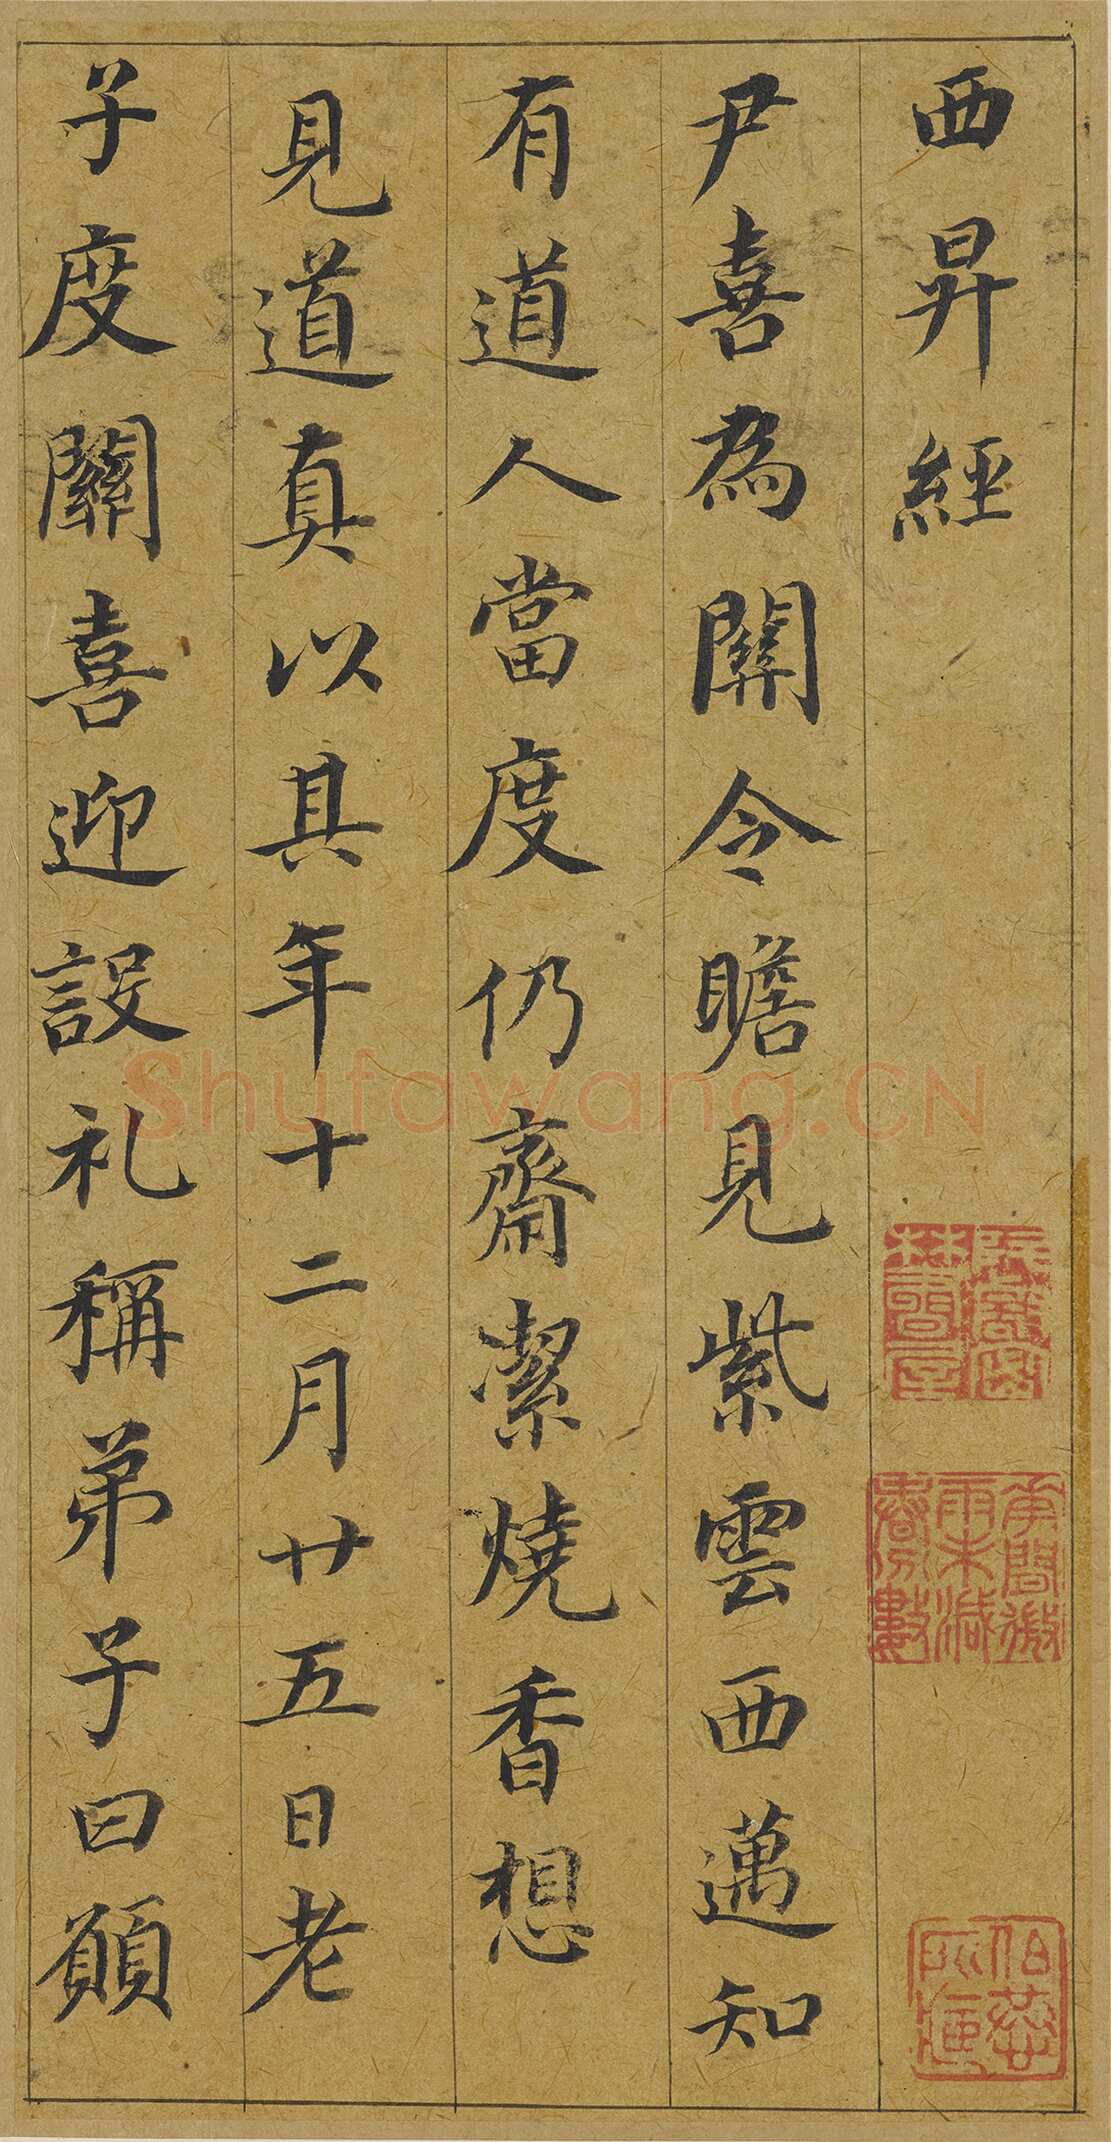 西昇經
尹喜為關令瞻見紫雲西邁知
有道人當度仍齋潔燒香想
見道真以其年十二月廿五日老
子度關喜迎設礼稱弟子曰願
Shufawang.CN